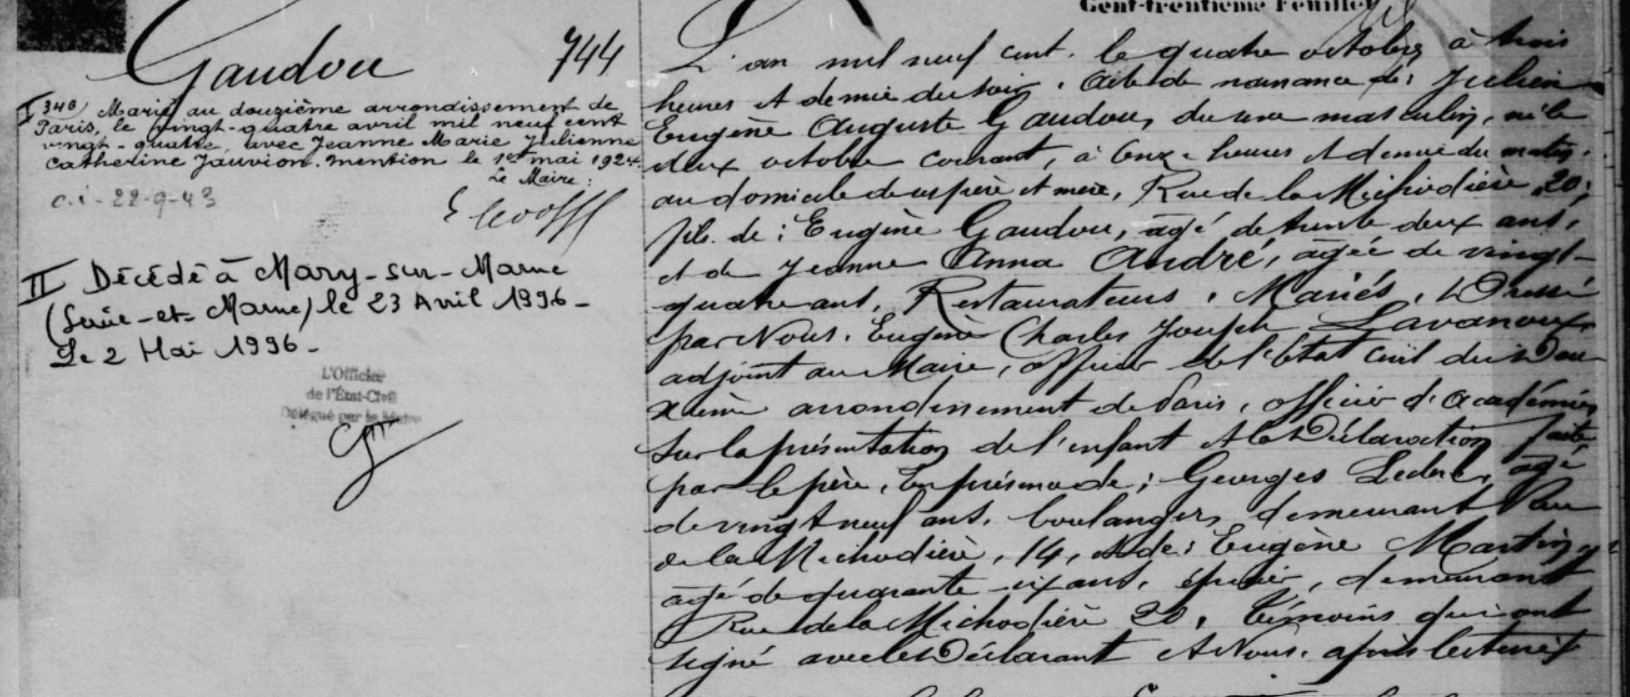 Cent-trentième Feuillet
Gaudou
744
I 340 Marié au douzième arrondissement de
Paris, le vingt-quatre avril mil neuf cent
vingt-quatre, avec Jeanne Marie Julienne
Catherine Jauvion. Mention le 1er mai 1924.
Le Maire :
c.i - 22-9-43
II Décédé à Mary-sur-Marne
(Seine-et-Marne) le 23 Avril 1996 -
Le 2 Mai 1996 -
L'Officier
de l'État-Civil
Délégué par le Maire
L'an mil neuf cent, le quatre octobre à trois
heures et demie du soir. Acte de naissance de : Julien
Eugène Auguste Gaudou, du sexe masculin, né le
deux octobre courant, à onze heures et demie du matin,
au domicile de ses père et mère, Rue de la Michodière, 20 ;
fils de : Eugène Gaudou, âgé de trente deux ans,
et de Jeanne Anna André, âgée de vingt-
quatre ans, Restaurateurs, Mariés. Dressé
par Nous, Eugène Charles Joseph Lavanoux,
adjoint au Maire, officier de l'état civil du Deu-
xième arrondissement de Paris, officier d'académie,
sur la présentation de l'enfant et la Déclaration faite
par le père. En présence de : Georges Leclerc, âgé
de vingt neuf ans, boulanger, demeurant Rue
de la Michodière, 14, et de : Eugène Martin,
âgé de quarante six ans, épicier, demeurant
Rue de la Michodière 20, témoins qui ont
signé avec le Déclarant et Nous, après lecture